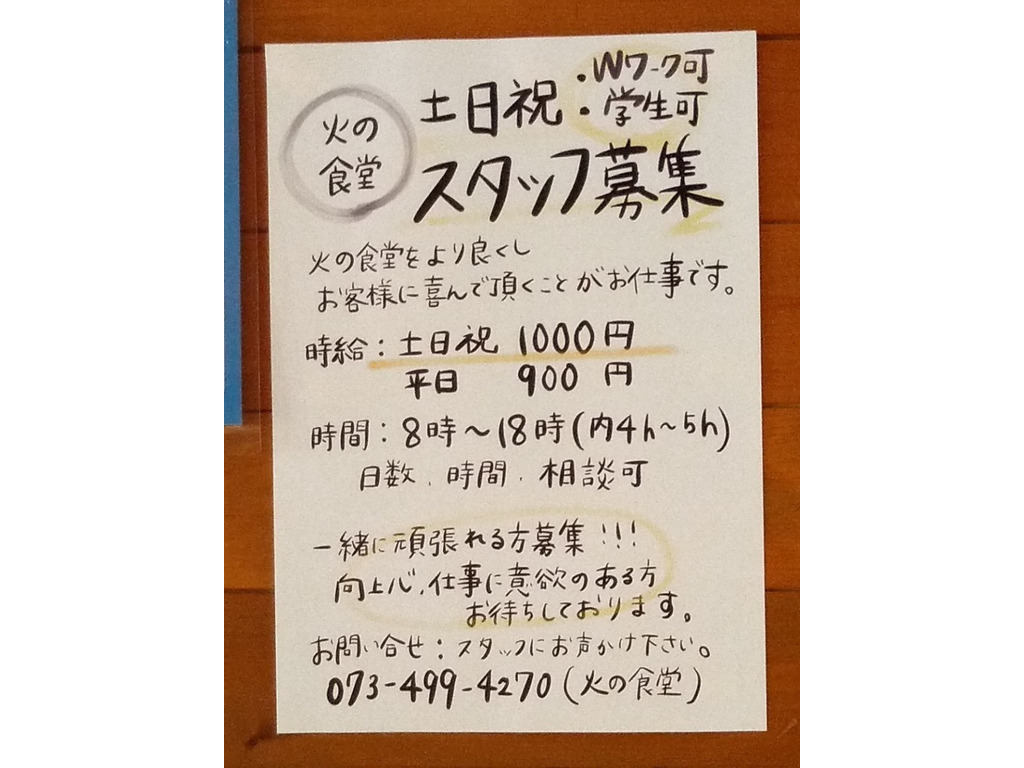 火の
食堂
土日祝
・Wワーク可
・学生可
スタッフ募集
火の食堂をより良くし
お客様に喜んで頂くことがお仕事です。
時給：土日祝 1000円
平日 900円
時間：8時〜18時(内4h〜5h)
日数、時間、相談可
一緒に頑張れる方募集!!!
向上心、仕事に意欲のある方
お待ちしております。
お問い合せ：スタッフにお声かけ下さい。
073-499-4270(火の食堂)